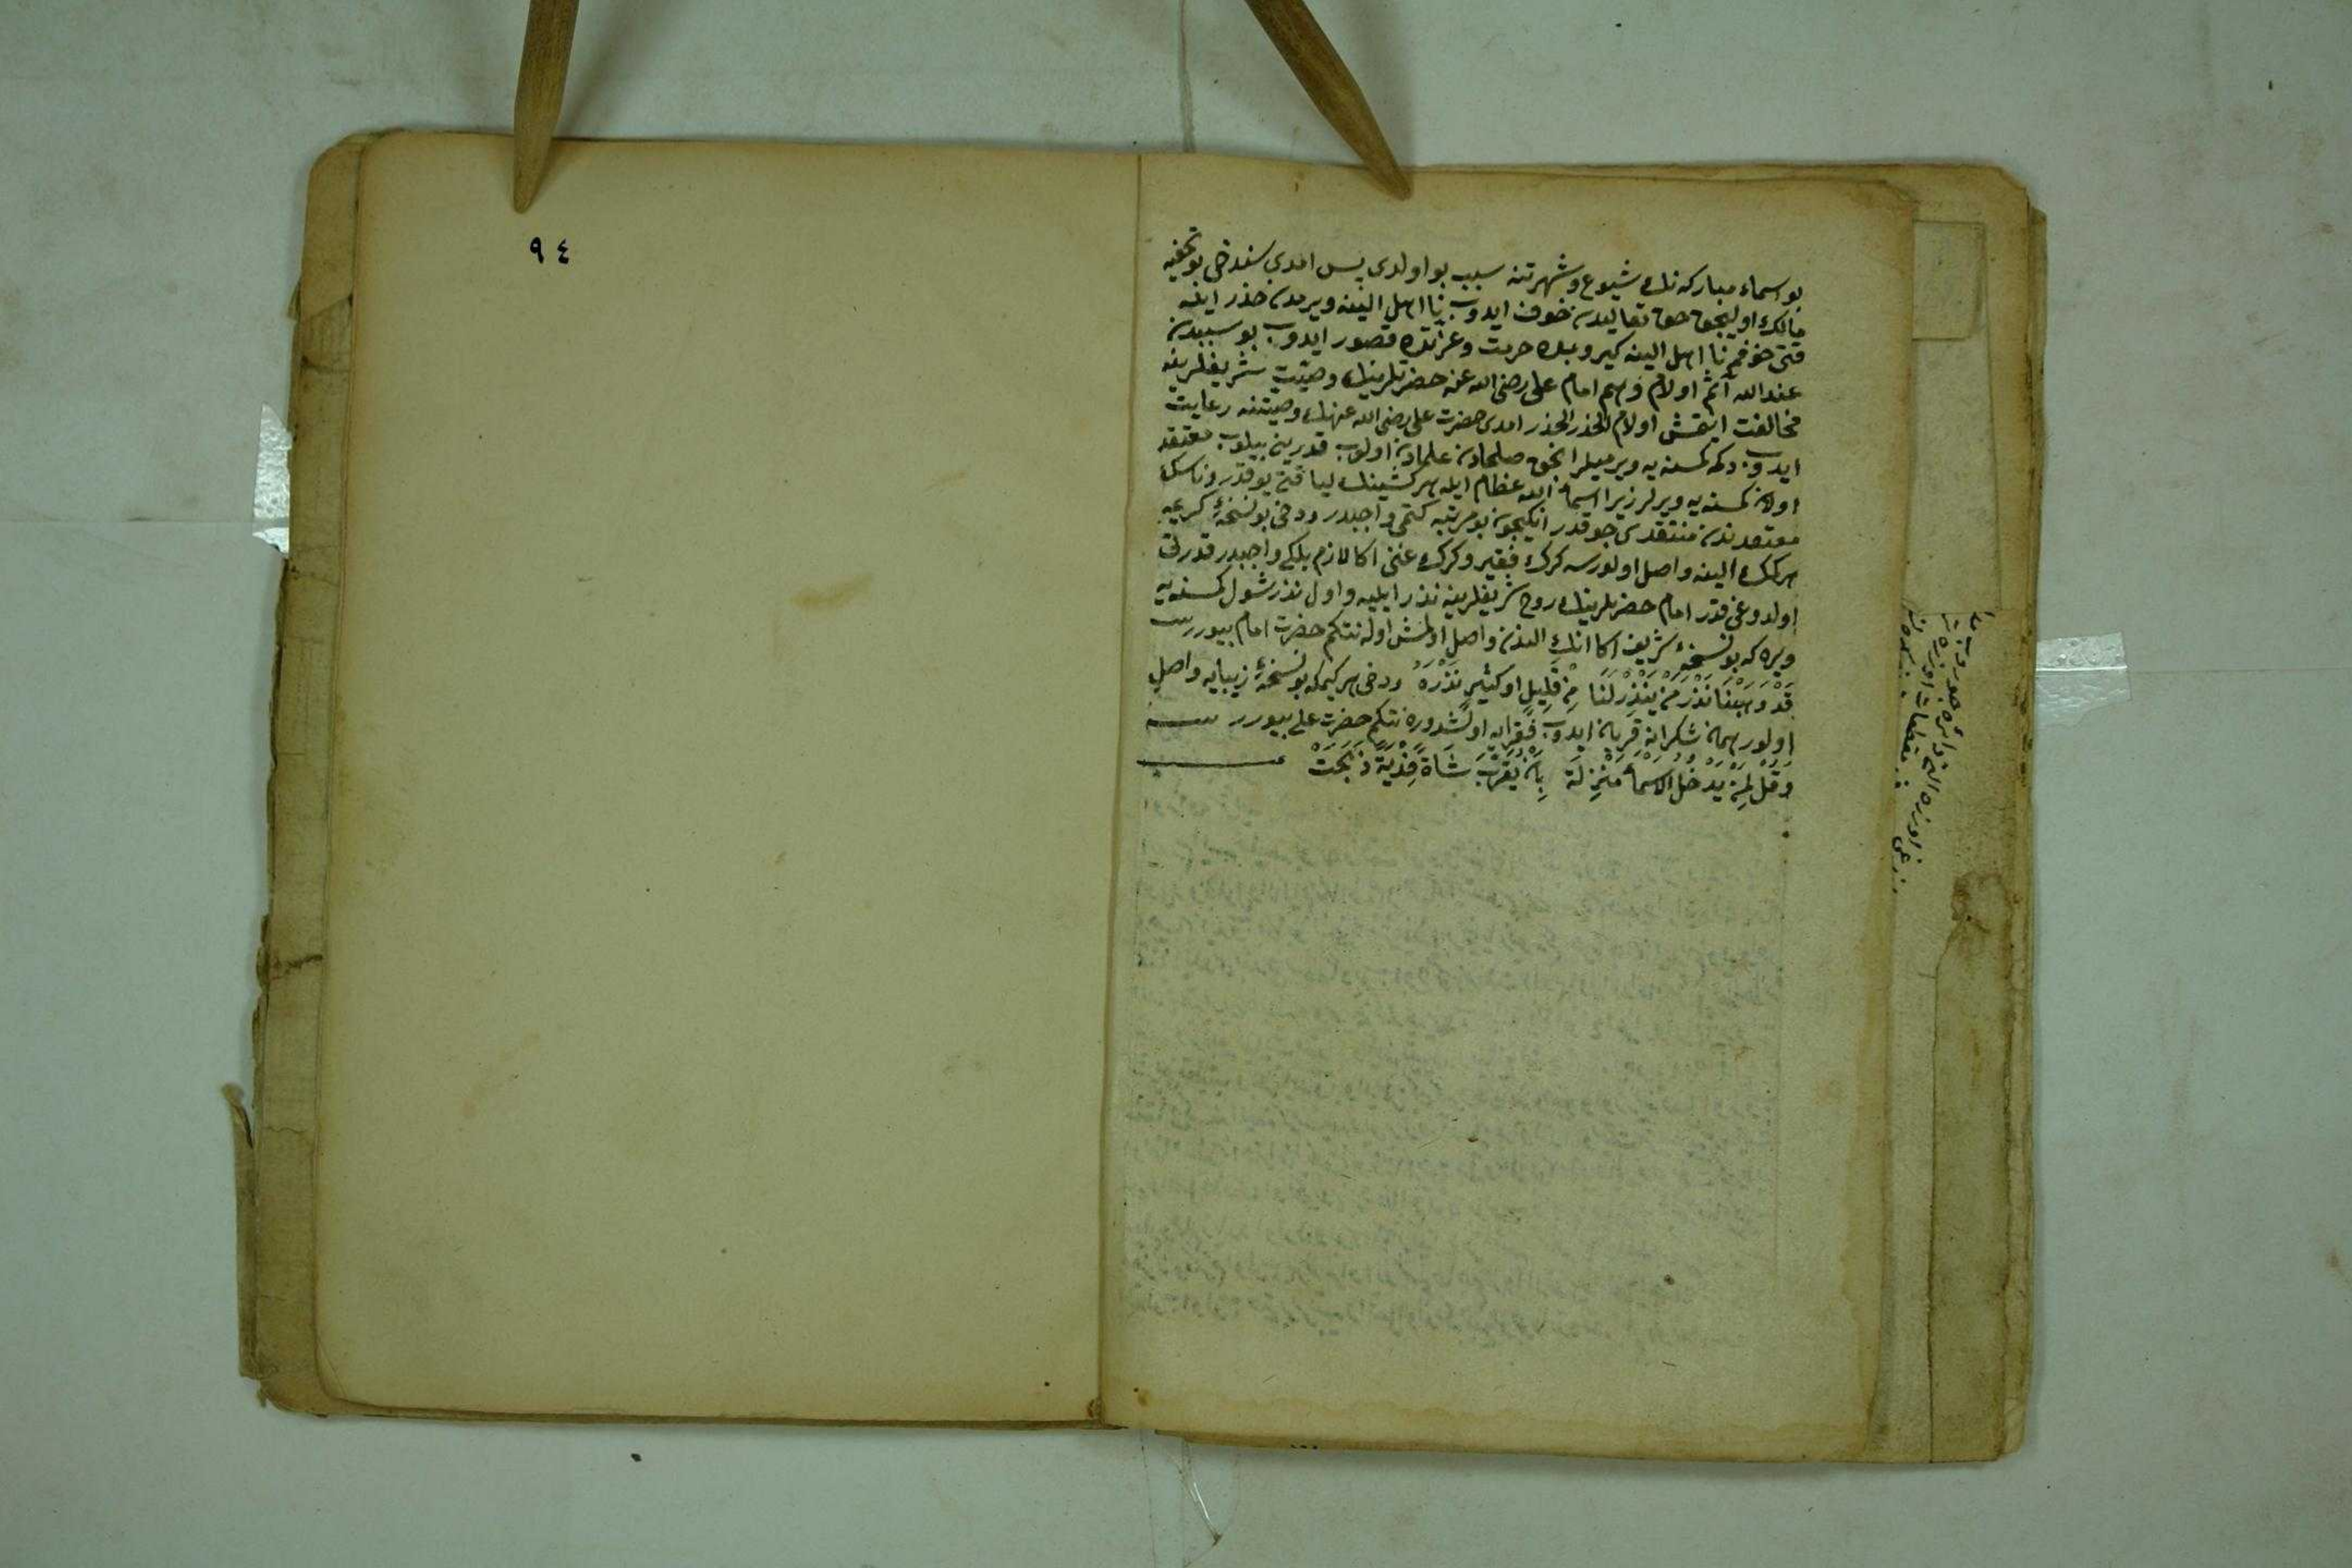 بو اسماء مباركه نك شيوع و شهرتنه سبب بو اولدى پس امدى سندخى بو تحفيه
مالك اوليجق حق تعاليدن خوف ايدوب نا اهل الينه ويرمدن حذر ايله
قتى خوفم نا اهل الينه كيروبده حرمت و عزتده قصور ايدوب بو سببدن
عند الله آثم اولام وهم امام على رضى الله عنه حضرتلرينك وصيت شريفلرينه
مخالفت ايتمش اولام الحذر الحذر امدى حضرت على رضى الله عنهنك وصيتنه رعايت
ايدوب دكمه كمسنه يه ويرميلر انجق صلحادن علمادن اولوب قدرين بيلوب معتقد
اولان كمسنه يه ويرلر زيرا اسماء الله عظام ايله هر كشينك لياقتى يوقدر و ناسك
معتقدندن منتقدى چوقدر انكيچون بو مرتبه كتمى واجبدر و دخى بو نسخهٔ كريمه
هر كمك الينه واصل اولورسه كرك فقير و كرك غنى اكا لازم بلكى واجبدر قدرتى
اولدوغى قدر امام حضرتلرينك روح شريفلرينه نذر ايليه و اول نذر شول كمسنه يه
ويره كه بو نسخهٔ شريف اكا انك الندن واصل اولمش اوله نتكم حضرت امام بيوررس
قَدْ وَهَبْنَا نَذْرَ مَنْ يَنْذِرْ لَنَا مِنْ قَلِيلٍ اَوْ كَثِيرٍ نَذْرَهُ و دخى هر كيمكه بو نسخهٔ زيبايه واصل
اولور همان شكرانه قربان ايدوب فقرايه اولشدوره نتكم حضرت على بيورر
وَقُلْ لِمَنْ يَدْخُلُ الْاَسْمَاءَ مَنْزِلَهُ بِاَنْ يُقَرِّبَ شَاةً فِدْيَةً ذُبِحَتْ
٩٤